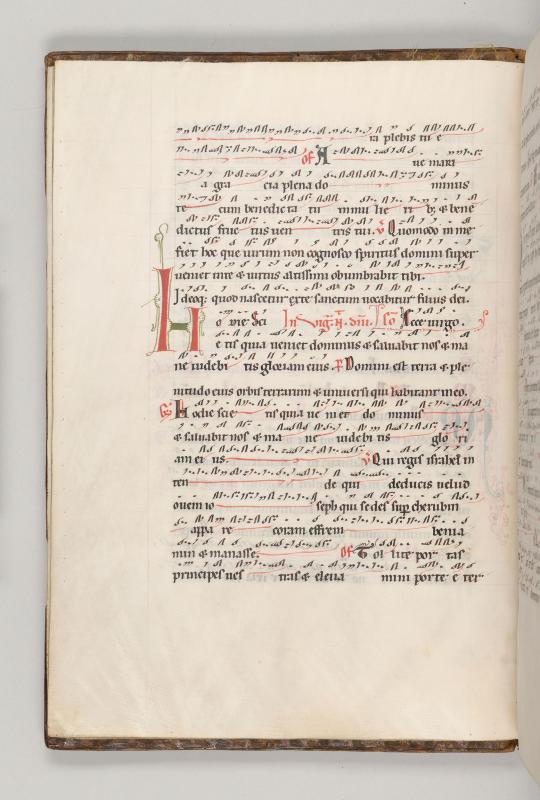 ia plebis tu e
of A ue mari
a gra cia plena do minus
te cum benedicta tu in mu lie ri b; & bene
dictus fruc tus uen tris tui. v Quomodo in me
fiet hoc que uirum non cognosco spiritus domini super
ueniet in te & uirtus altissimi obumbrabit tibi.
Ideoq; quod nascetur ex te sanctum uocabitur filius dei.
Ecce uirgo.
H e tis quia ueniet dominus & saluabit nos & ma
ne uidebi tis gloriam eius. Domini est terra & ple
nitudo eius orbis terrarum & uniuersi qui habitant in eo.
Hodie scie tis quia ue ni et do minus
& saluabit nos & ma ne uidebi tis glo ri
am ei us. v Qui regis israhel in
ten de qui deducis uelud
ouem io seph qui sedes sup cherubin
appa re coram effrem benia
min & manasse. of Tol lite por tas
principes ues tras & eleua mini porte e ter